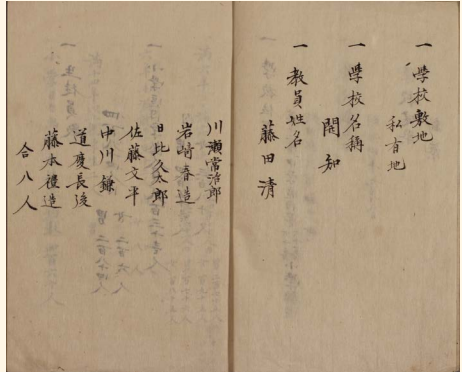 一 學校敷地
私有地
一 學校名稱
開知
一 教員姓名
藤田清
川瀬常治郎
岩崎春造
日比久太郎
佐藤文平
中川鎌
道慶長後
藤本禮造
合八人